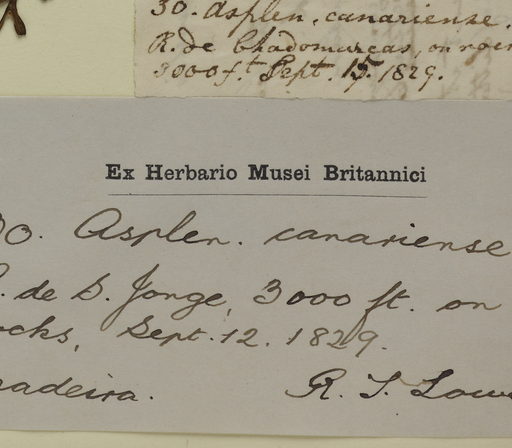 30. Asplen. canariense.
R. de Chadomarcas, on
3000 f.t Sept. 15. 1829.
Ex Herbario Musei Britannici
30. Asplen. canariense
R. de S. Jorge, 3000 ft. on
ocks, Sept. 12. 1829.
adeira. R. T. Low